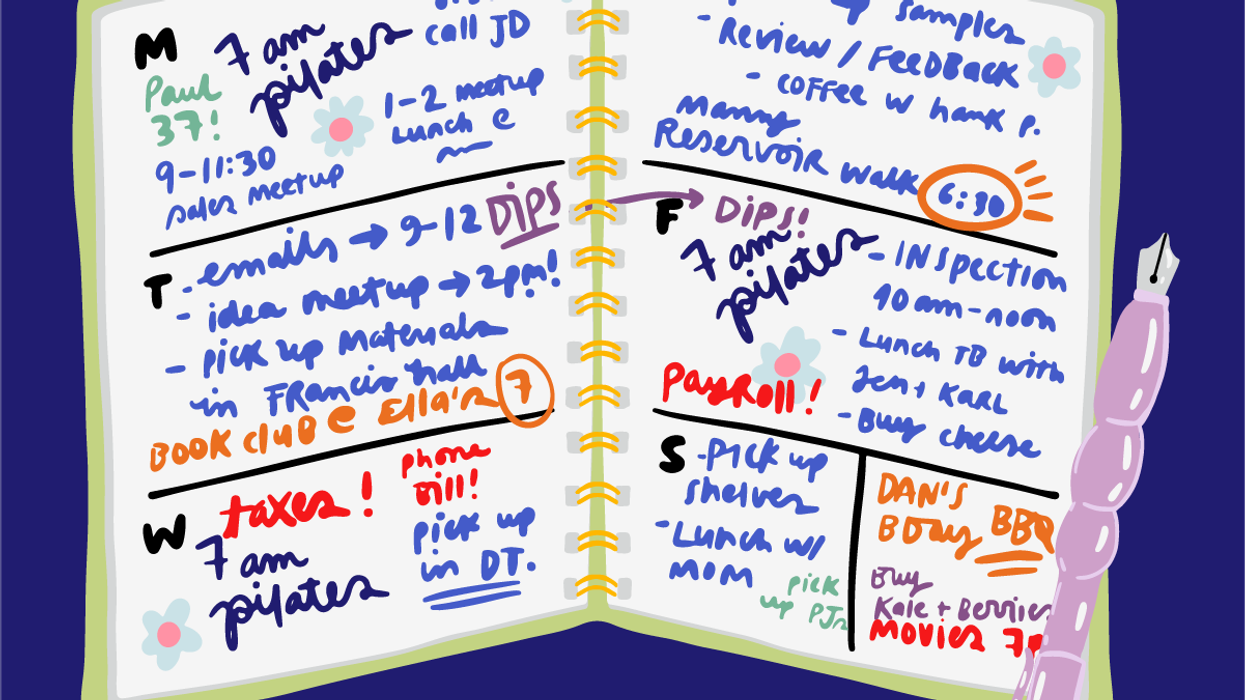 M
7 am
pilates
call JD
Paul
37!
1-2 meetup
Lunch @
9-11:30
sales meetup
T
- emails → 9-12 DIPS
- idea meetup → 2pm!
- pick up Materials
in FRancis hall
BOOK club @ Ella's 7
W
taxes!
phone
bill!
7 am
pilates
pick up
in DT.
samples
- Review / FeedBack
- coffee w hank p.
Manny
Reservoir walk 6:30
F
DIPS!
7 am
pilates
- INspection
10 am-noon
- Lunch TB with
Jen + Karl
- Buy cheese
PayRoll!
S
- PICK up
shelves
- Lunch w/
mom
pick
up PJs
DAN'S
Bday BBQ
Buy
Kale + Berries
movies 7